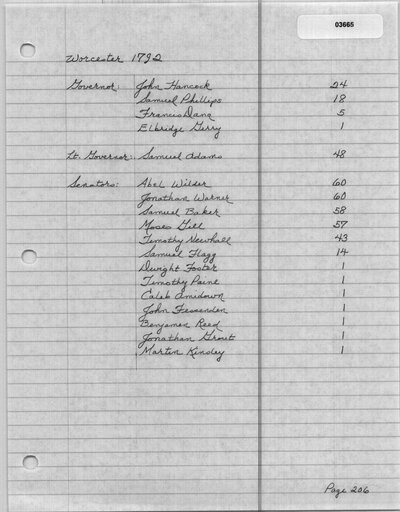 03665
Worcester 1792
Governor: John Hancock 24
Samuel Phillips 18
Francis Dana 5
Elbridge Gerry 1
Lt. Governor: Samuel Adams 48
Senators: Abel Wilder 60
Jonathan Warner 60
Samuel Baker 58
Moses Gill 57
Timothy Newhall 43
Samuel Flagg 14
Dwight Foster 1
Timothy Paine 1
Caleb Amidown 1
John Fessenden 1
Benjamen Reed 1
Jonathan Grout 1
Martin Kinsley 1
Page 206